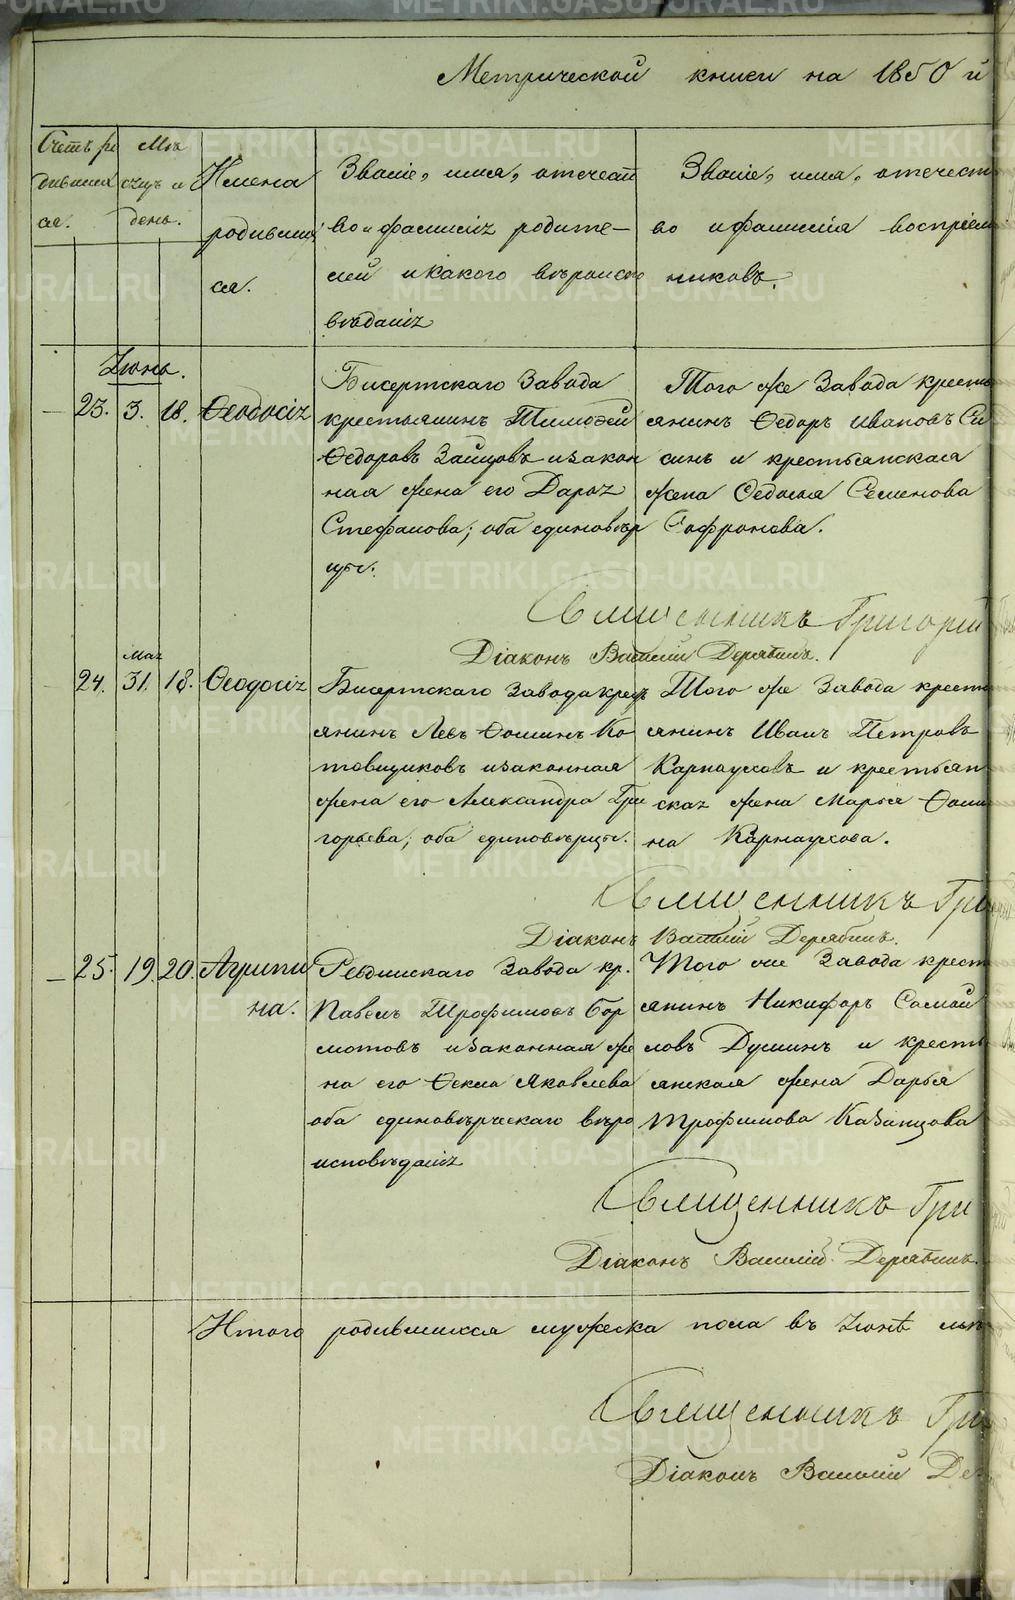 Метрической книги на 1850 й
Счетъ ро Мѣ
дившихся сяцъ и Имена Званіе, имя, отечест Званіе, имя, отечест
ся. день. родивших во и фамилія родите- во и фамилія воспріем
ся. лей и какого вѣроиспо никовъ.
вѣданія
Іюнь.
23. 3. 18. Ѳеодосія
Бисертскаго Завода
крестьянинъ Тимоѳей
Ѳедоровъ Зайцовъ и закон
ная жена его Дарья
Стефанова; оба единовѣр
цы.
Того же Завода кресть
янинъ Ѳедоръ Ивановъ Си
синъ и крестьянская
жена Ѳедосья Семенова
Сафронова.
Священникъ Григорій
Діаконъ Василій Дерябинъ.
Мая
24. 31. 18. Ѳеодосія
Бисертскаго Завода крест
янинъ Левъ Ѳоминъ Ко
товщиковъ и законная
жена его Александра Гри
горьева; оба единовѣрцы.
Того же Завода кресть
янинъ Иванъ Петровъ
Карнауховъ и крестьян
ская жена Марья Ѳоми
на Карнаухова.
Священникъ Гри
Діаконъ Василій Дерябинъ.
25. 19. 20. Агрипи
на.
Ревдинскаго Завода кр.
Павелъ Трофимовъ Бор
мотовъ и законная же
на его Ѳекла Яковлева
оба единовѣрческаго вѣро
исповѣданія
Того же Завода крест
янинъ Никифоръ Самой
ловъ Душинъ и кресть
янская жена Дарья
Трофимова Казанцова
Священникъ Гри
Діаконъ Василій Дерябинъ.
Итого родившихся мужеска пола въ Іюнѣ мѣ
Священникъ Гри
Діаконъ Василій Де
METRIKI.GASO-URAL.RU